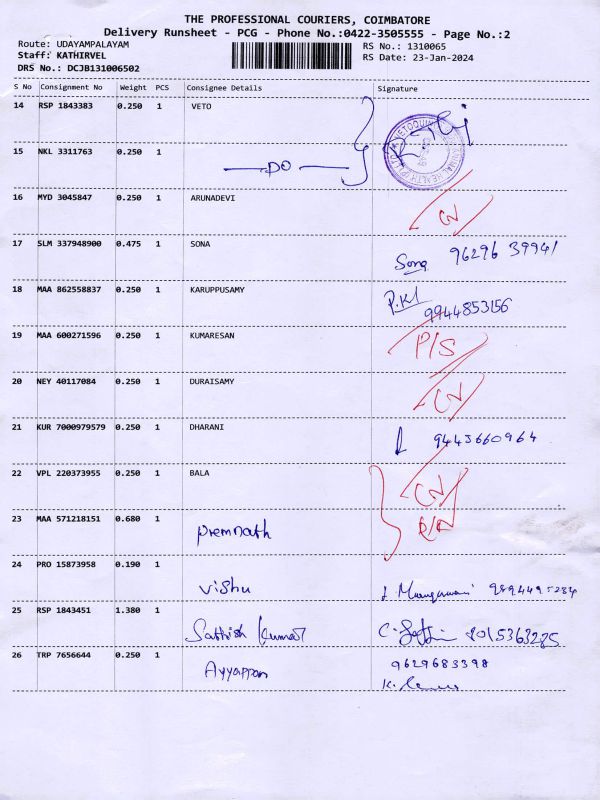 THE PROFESSIONAL COURIERS, COIMBATORE
Delivery Runsheet - PCG - Phone No.:0422-3505555 - Page No.:2
Route: UDAYAMPALAYAM RS No.: 1310065
Staff: KATHIRVEL RS Date: 23-Jan-2024
DRS No.: DCJB131006502
S No Consignment No Weight PCS Consignee Details Signature
14 RSP 1843383 0.250 1 VETO
15 NKL 3311763 0.250 1 —DO—
16 MYD 3045847 0.250 1 ARUNADEVI
17 SLM 337948900 0.475 1 SONA Sona 96296 39941
18 MAA 862558837 0.250 1 KARUPPUSAMY P.Kl 9944853156
19 MAA 600271596 0.250 1 KUMARESAN P/S
20 NEY 40117084 0.250 1 DURAISAMY CN
21 KUR 7000979579 0.250 1 DHARANI 9443660964
22 VPL 220373955 0.250 1 BALA CN
23 MAA 571218151 0.680 1 Premnath
24 PRO 15873958 0.190 1 Vishu 9894495284
25 RSP 1843451 1.380 1 Sathish kumar 8015363285
26 TRP 7656644 0.250 1 Ayyappan 9629683398